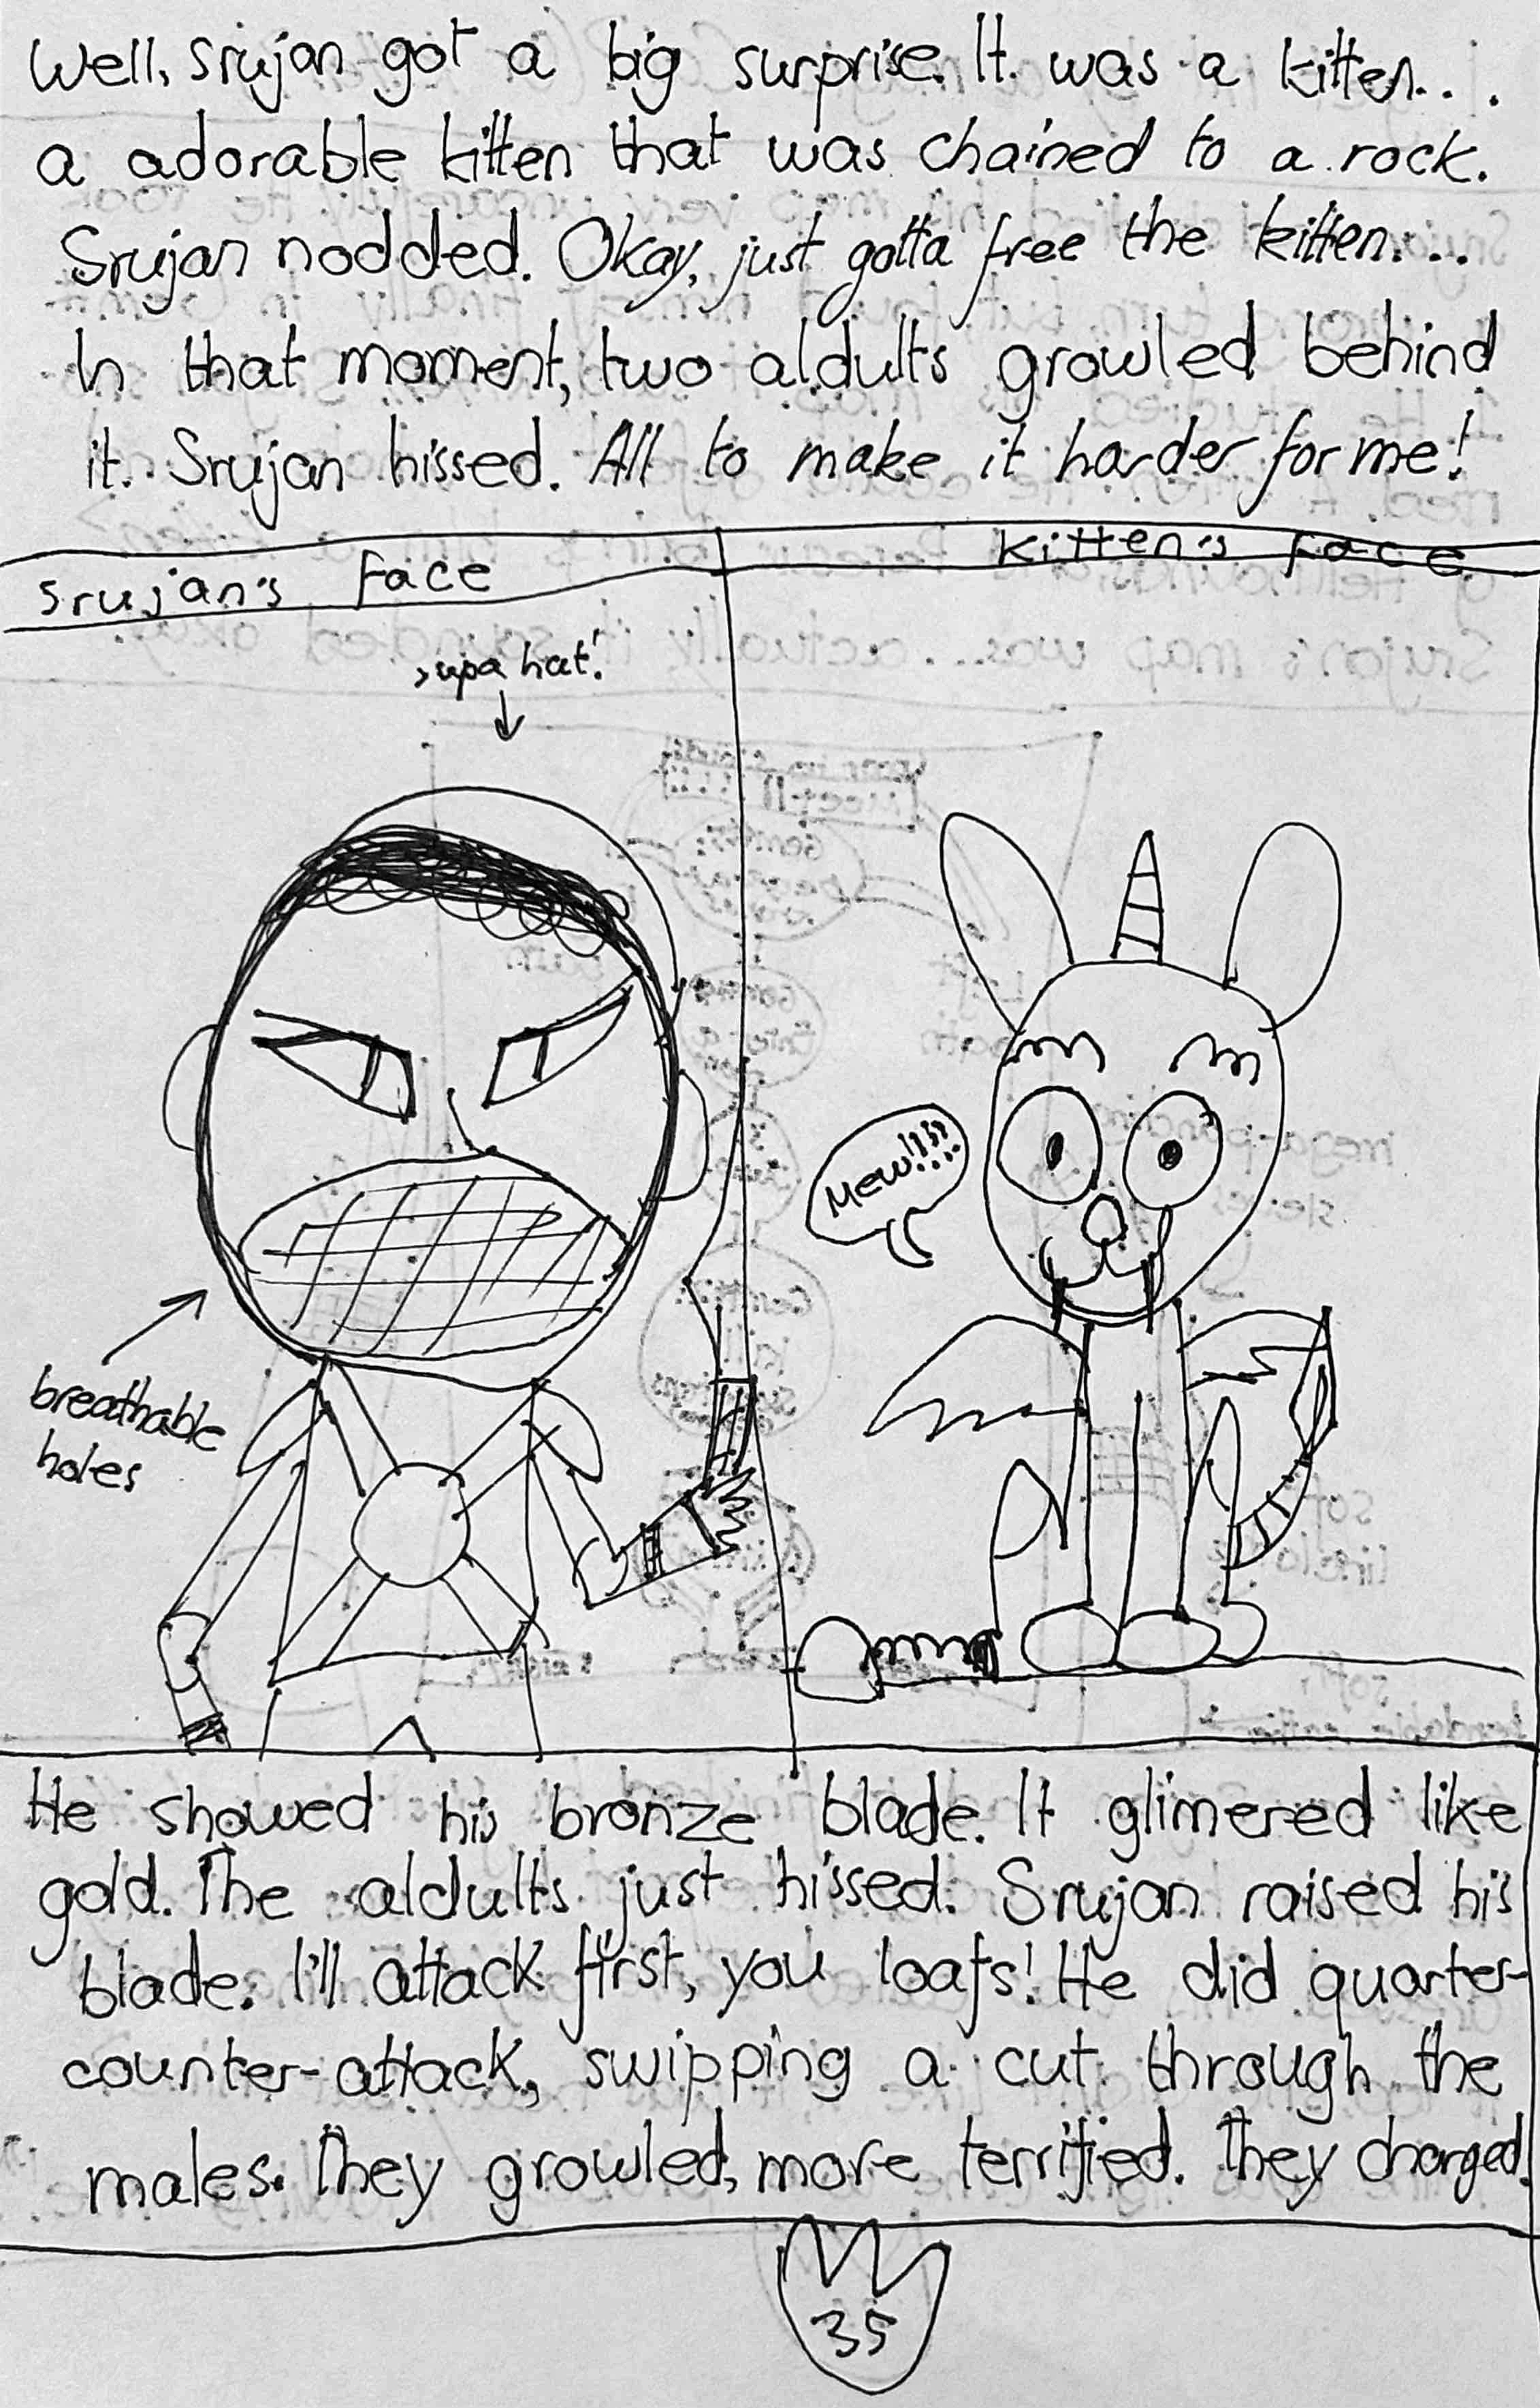 Well, Srujan got a big surprise. It was a kitten...
a adorable kitten that was chained to a rock.
Srujan nodded. Okay, just gotta free the kitten...
In that moment, two aldults growled behind
it. Srujan hissed. All to make it harder for me!
Srujan's Face
Kitten's Face
supa hat!
Mew!!!!
breathable
holes
He showed his bronze blade. It glimered like
gold. The aldults just hissed. Srujan raised his
blade. I'll attack first, you loafs! He did quarter-
counter-attack, swipping a cut through the
males. They growled, more terrified. They charged.
35